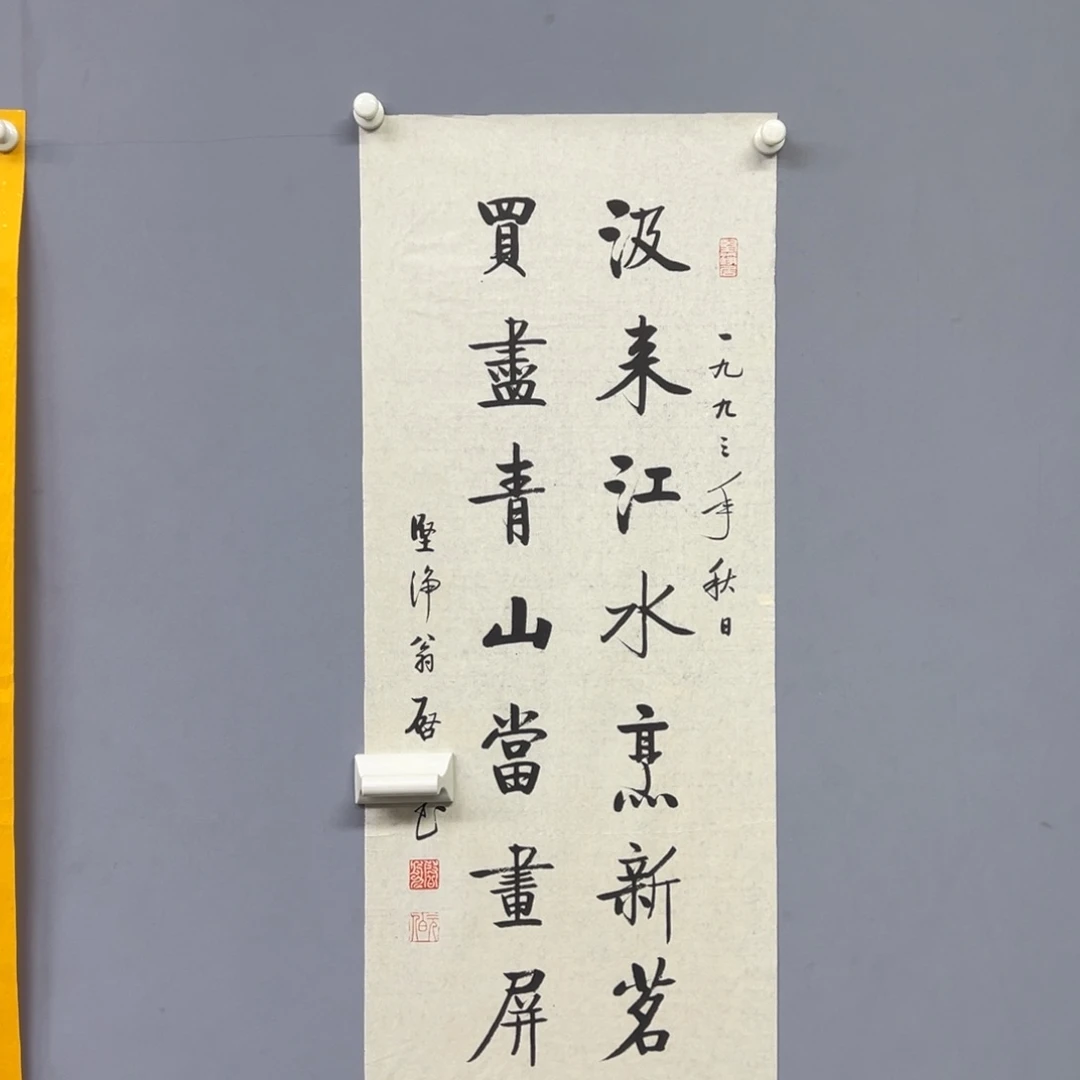 一九九三年秋日
汲来江水烹新茗
買盡青山當畫屏
堅淨翁啓